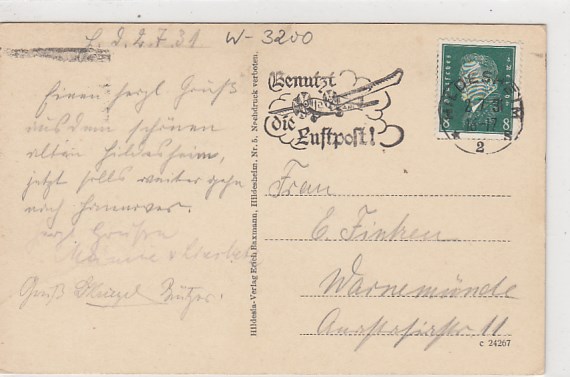 L. d. 2.7.31
W-3200
Einen herzl. Gruß
aus dem schönen
alten Hildesheim,
jetzt solls weiter gehn
nach Hannover.
Grüßen
Gruß
Hildesia-Verlag Erich Baxmann, Hildesheim, Nr. 5. Nachdruck verboten.
Benutzt
die
Luftpost!
HILDESHEIM
8 8
2
Frau
E. Finken
Warnemünde
11
c 24267